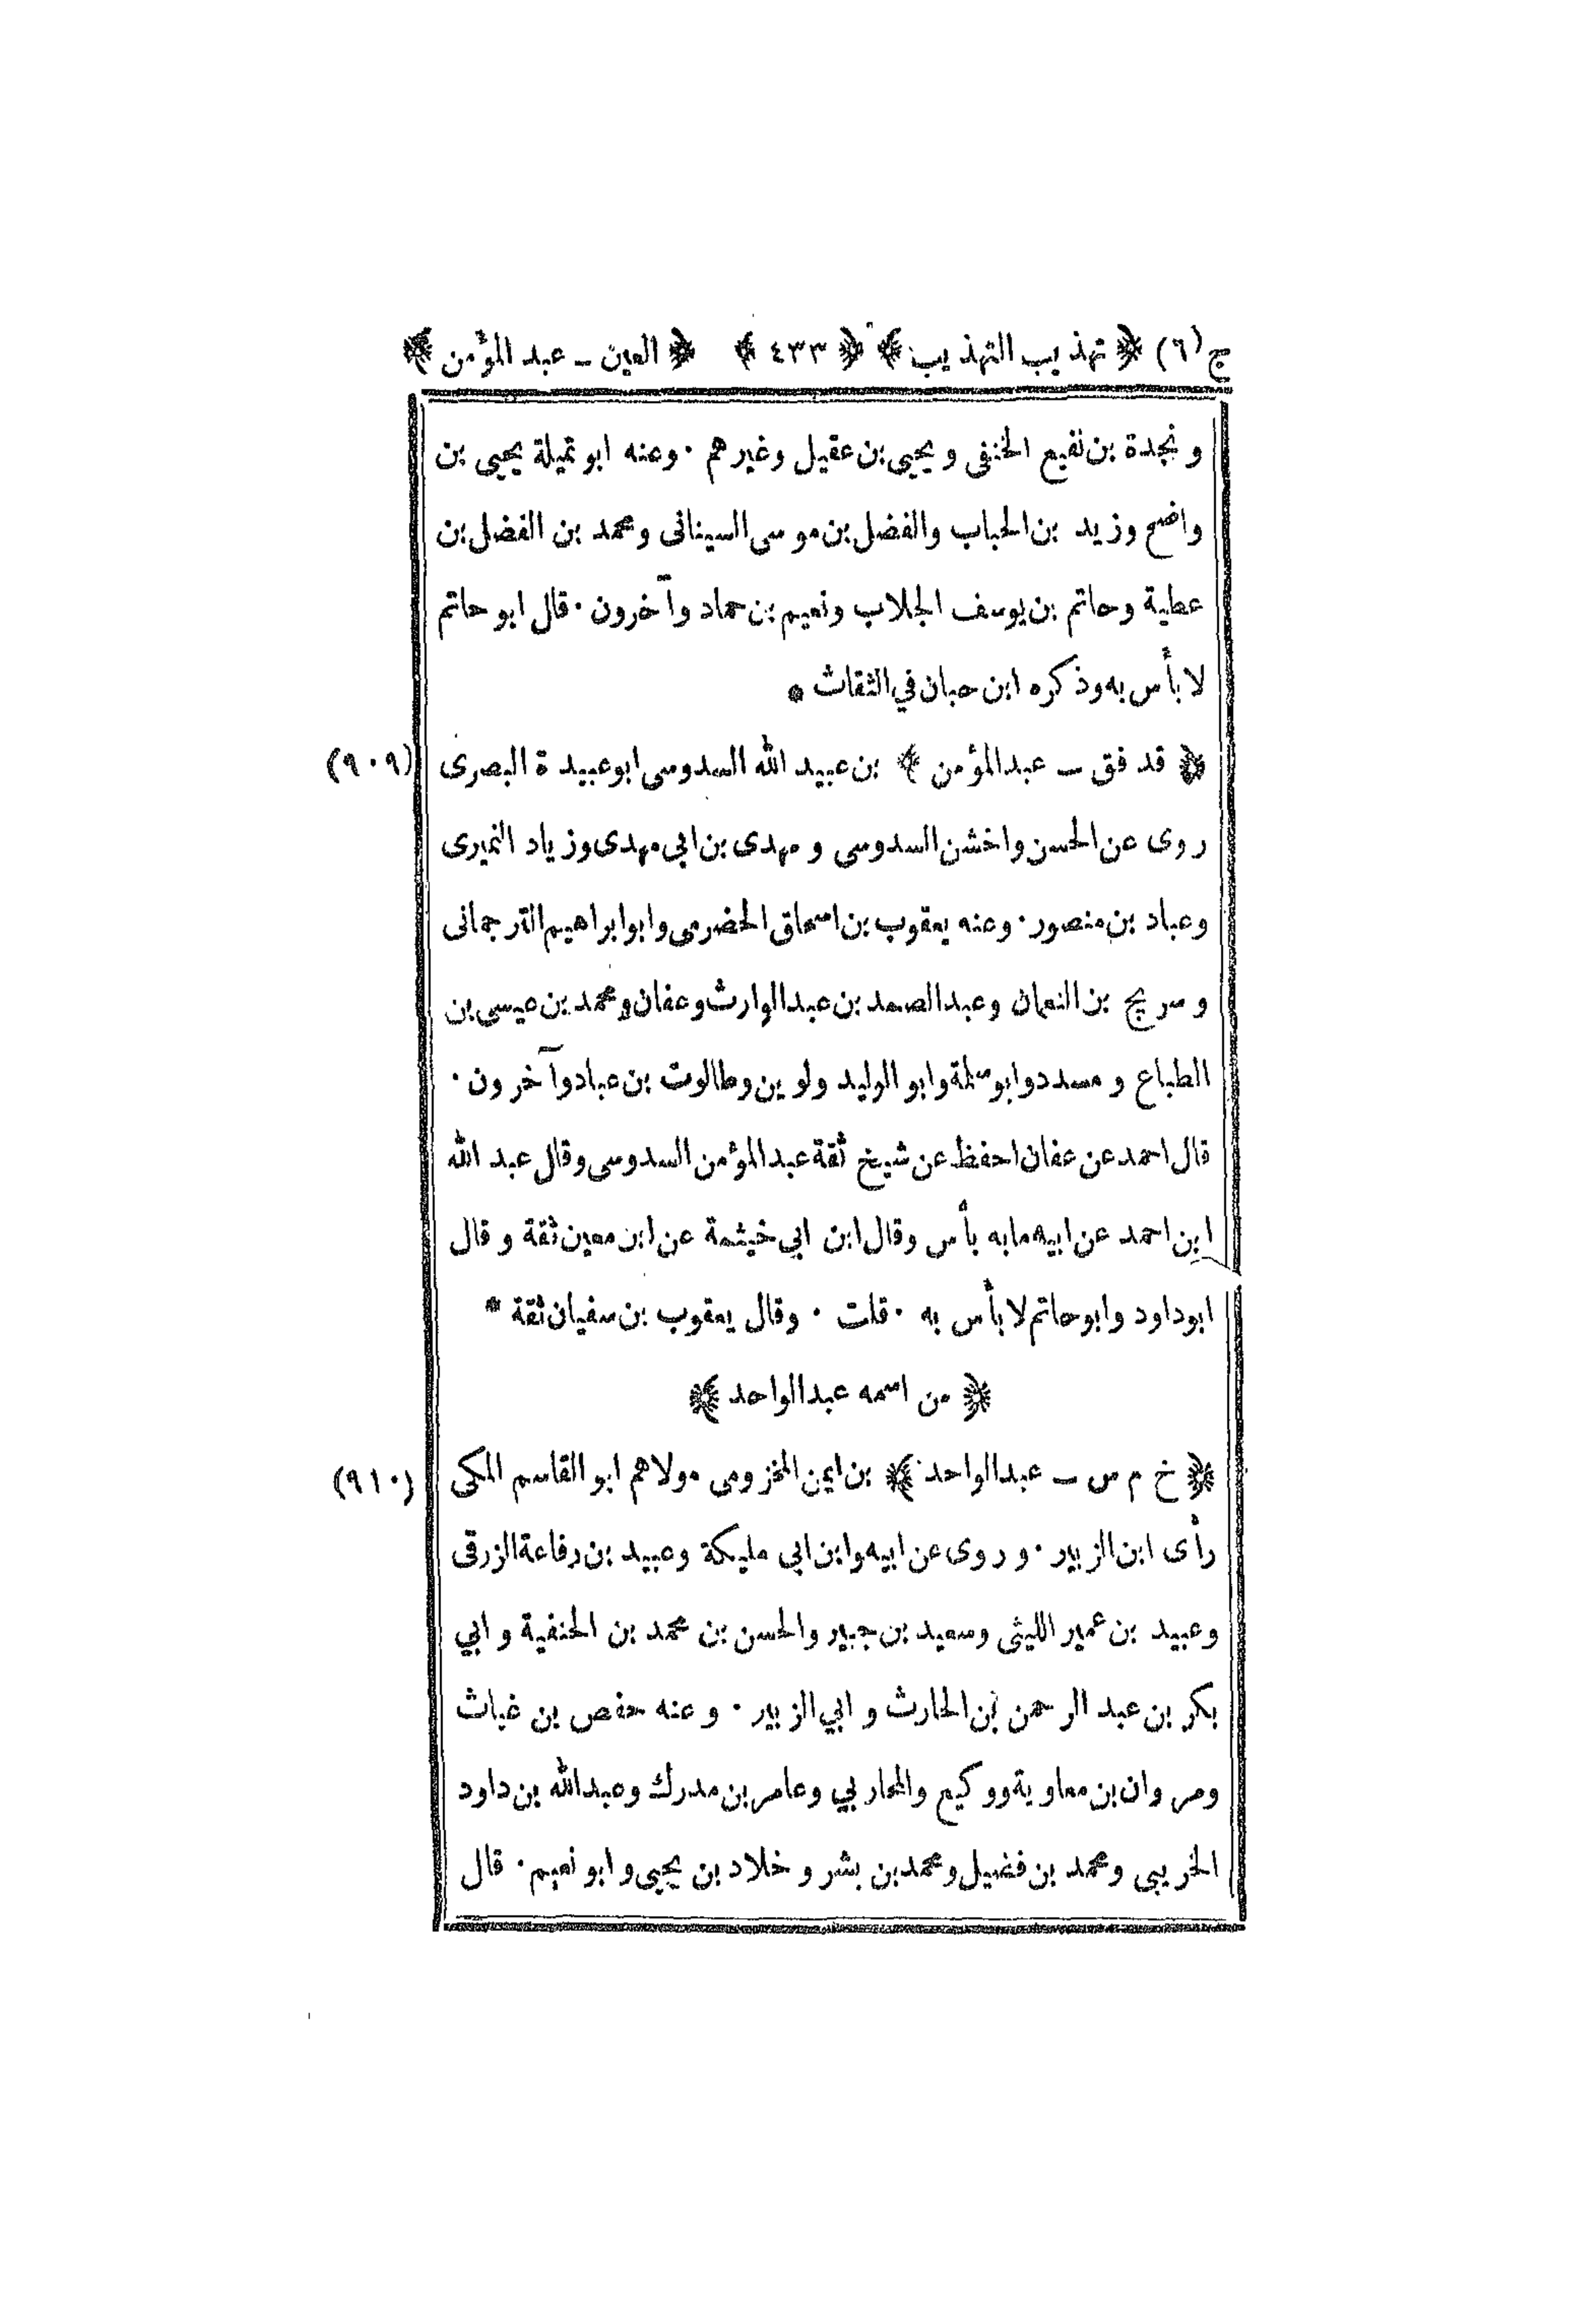 ج (٦) ﴿ تهذيب التهذيب ﴾ ﴿ ٤٣٣ ﴾ ﴿ العين ـ عبد المؤمن ﴾
و نجدة بن نفيع الحنفى و يحيى بن عقيل وغيرهم ٠ وعنه ابو تميلة يحيى بن
واضح وزيد بن الحباب والفضل بن موسى السينانى ومحمد بن الفضل بن
عطية وحاتم بن يوسف الجلاب ونعيم بن حماد وآخرون ٠ قال ابو حاتم
لا بأس به وذكره ابن حبان في الثقات *
﴿ قد فق ـ عبد المؤمن ﴾ بن عبيد الله السدوسى ابو عبيدة البصرى (٩٠٩)
روى عن الحسن واخشن السدوسى و مهدى بن ابي مهدى وزياد النميرى
وعباد بن منصور ٠ وعنه يعقوب بن اسحاق الحضرمى وابو ابراهيم الترجمانى
و سريج بن النعمان وعبد الصمد بن عبد الوارث وعفان ومحمد بن عيسى بن
الطباع و مسدد وابو سلمة وابو الوليد ولوين وطالوت بن عباد وآخرون ٠
قال احمد عن عفان احفظ عن شيخ ثقة عبد المؤمن السدوسى وقال عبد الله
ابن احمد عن ابيه ما به بأس وقال ابن ابي خيثمة عن ابن معين ثقة و قال
ابو داود وابو حاتم لا بأس به ٠ قلت ٠ وقال يعقوب بن سفيان ثقة *
﴿ من اسمه عبد الواحد ﴾
﴿ خ م س ـ عبد الواحد ﴾ بن ايمن المخزومى مولاهم ابو القاسم المكى (٩١٠)
رأى ابن الزبير ٠ و روى عن ابيه وابن ابي مليكة وعبيد بن رفاعة الزرقى
وعبيد بن عمير الليثى وسعيد بن جبير والحسن بن محمد بن الحنفية و ابي
بكر بن عبد الرحمن بن الحارث و ابي الزبير ٠ و عنه حفص بن غياث
ومروان بن معاوية ووكيع والمحاربي وعامر بن مدرك وعبد الله بن داود
الخريبى ومحمد بن فضيل ومحمد بن بشر و خلاد بن يحيى و ابو نعيم ٠ قال